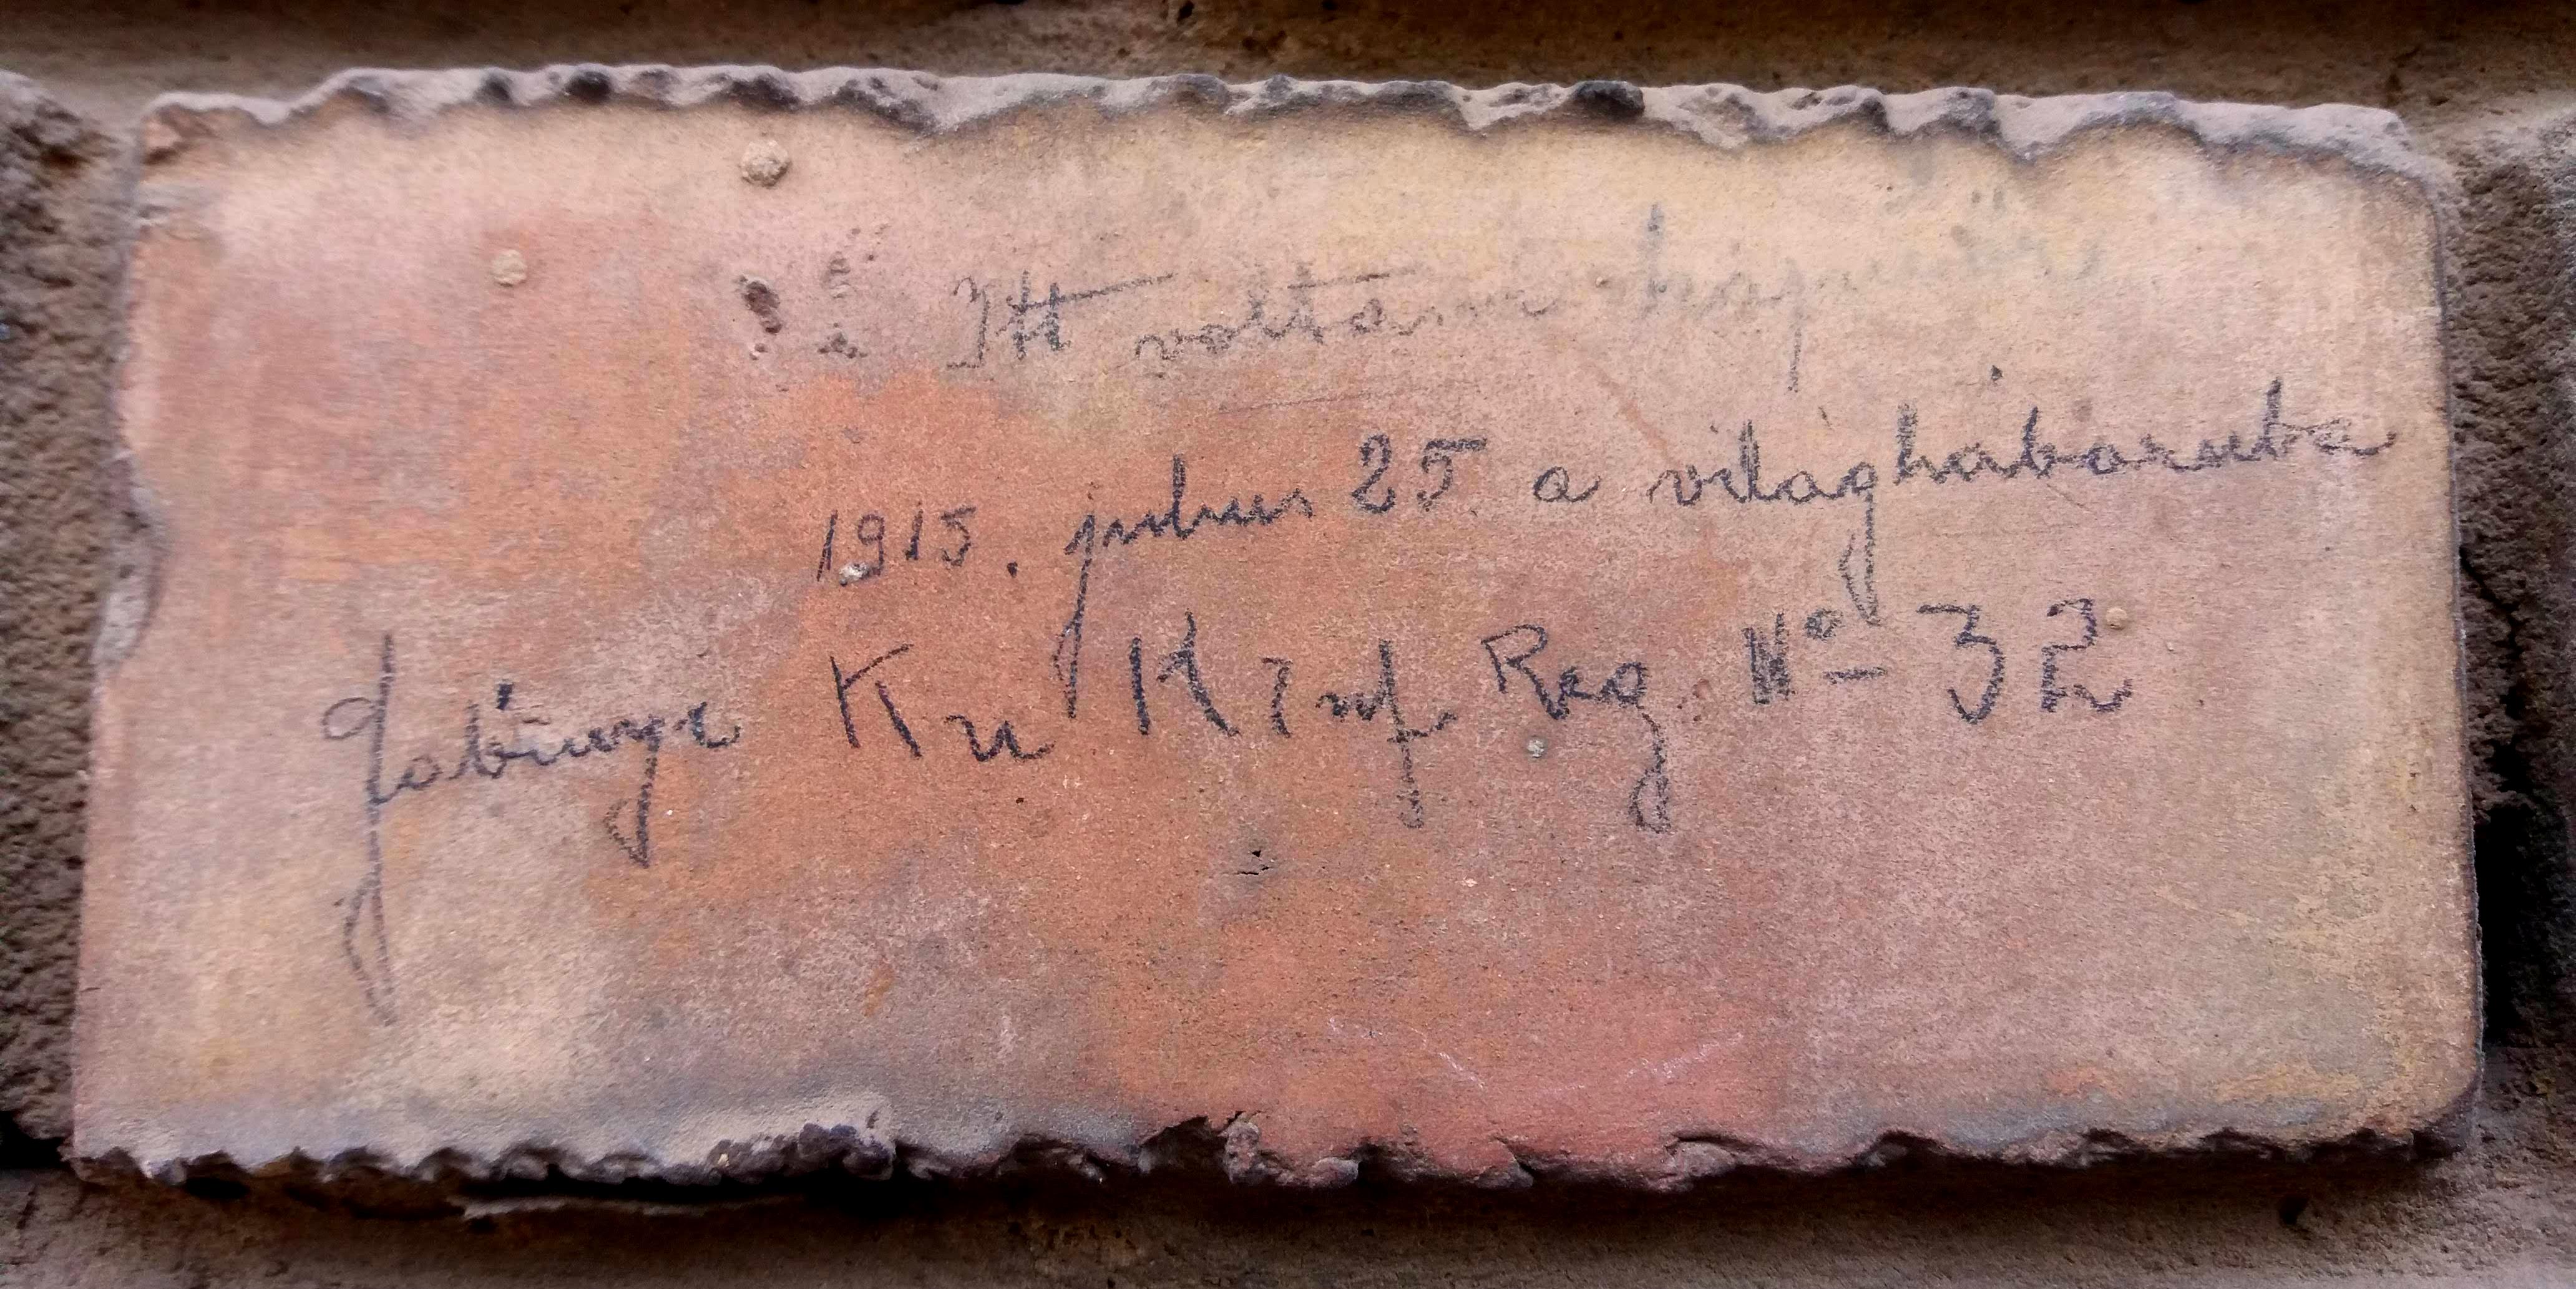 Itt voltam
1915. julius 25. a világháboruba
K u K Inf Reg. Nº 32